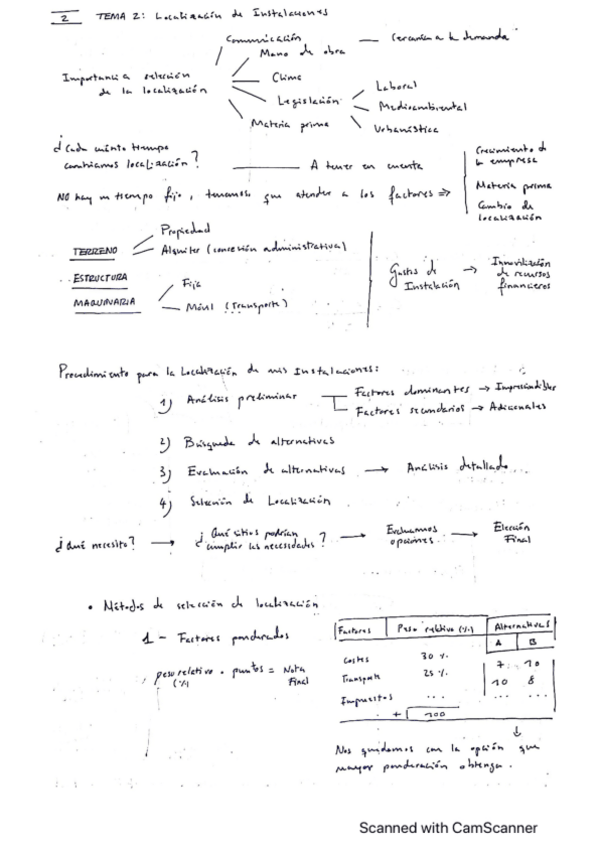 2 TEMA 2: Localización de Instalaciones
Comunicación — Cercanía a la demanda
Mano de obra
Importancia selección de la localización
Clima
Legislación
Laboral
Medioambiental
Urbanística
Materia prima
¿Cada cuánto tiempo
cambiamos localización? — A tener en cuenta
Crecimiento de
la empresa
Materia prima
Cambio de
localización
NO hay un tiempo fijo, tenemos que atender a los factores ⇒
TERRENO
Propiedad
Alquiler (concesión administrativa)
ESTRUCTURA
MAQUINARIA
Fija
Móvil (Transporte)
Gastos de
Instalación → Inmovilización
de recursos
financieros
Procedimiento para la Localización de mis Instalaciones:
1) Análisis preliminar
Factores dominantes → Imprescindibles
Factores secundarios → Adicionales
2) Búsqueda de alternativas
3) Evaluación de alternativas → Análisis detallado
4) Selección de Localización
¿Qué necesito? → ¿Qué sitios podrían
cumplir las necesidades? → Evaluamos
opciones → Elección
Final
• Métodos de selección de localización
1 - Factores ponderados
peso relativo · puntos = Nota
(%) Final
Factores Peso relativo (%) Alternativas
A B
Costes 30 % 7 10
Transporte 25 % 10 8
Impuestos ... ... ...
+ 100
↓
Nos quedamos con la opción que
mayor ponderación obtenga.
Scanned with CamScanner